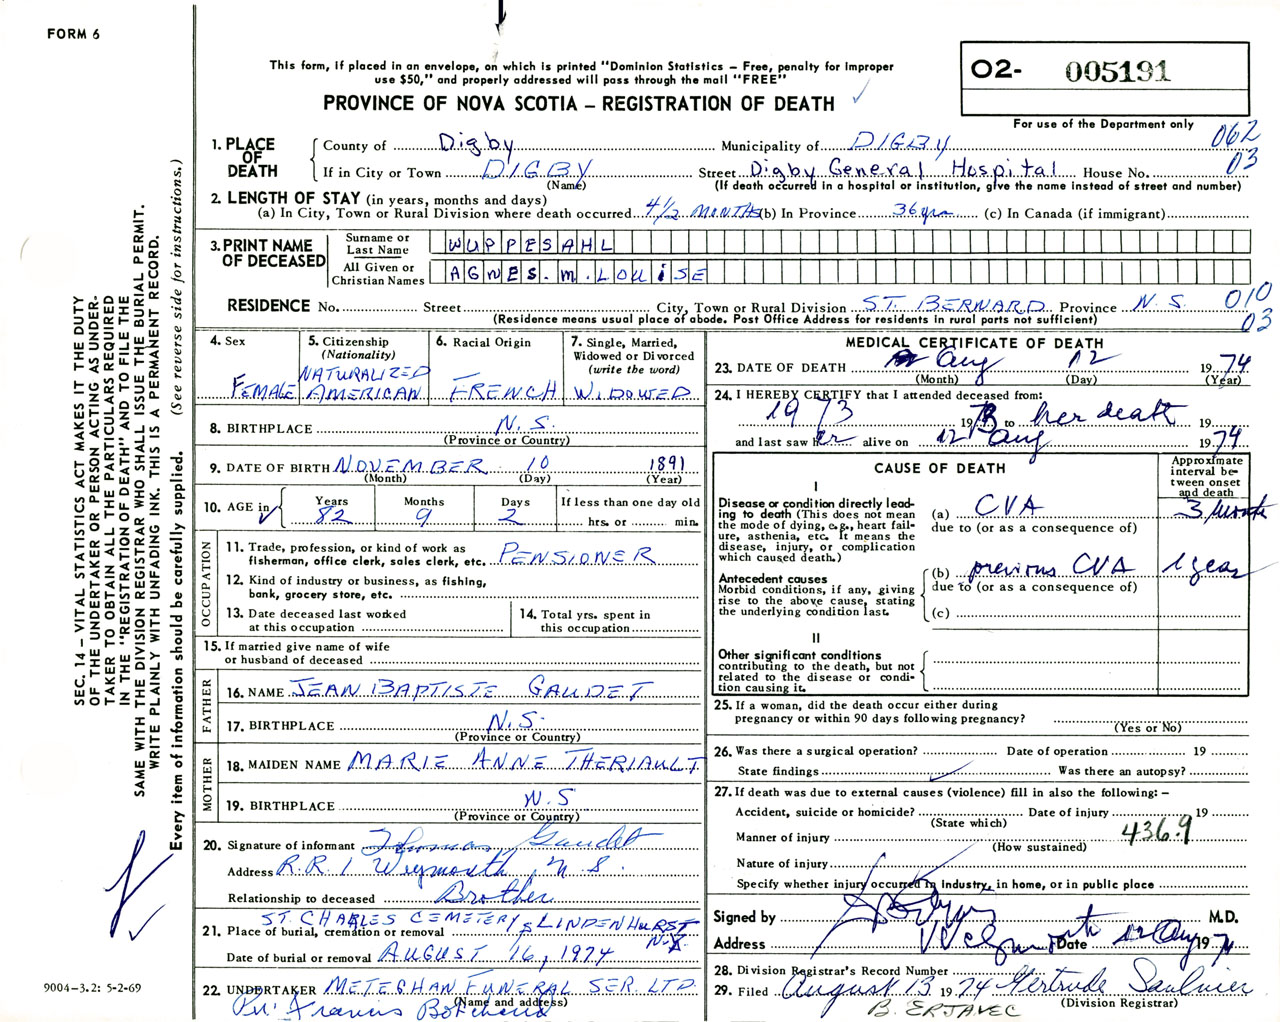 FORM 6
This form, if placed in an envelope, on which is printed "Dominion Statistics – Free, penalty for improper
use $50," and properly addressed will pass through the mail "FREE"
PROVINCE OF NOVA SCOTIA – REGISTRATION OF DEATH
O2- 005191
For use of the Department only
062
03
1. PLACE OF DEATH
County of Digby Municipality of DIGBY
If in City or Town DIGBY Street Digby General Hospital House No.
(Name) (If death occurred in a hospital or institution, give the name instead of street and number)
2. LENGTH OF STAY (in years, months and days)
(a) In City, Town or Rural Division where death occurred 4 1/2 MONTHS (b) In Province 36 yrs (c) In Canada (if immigrant)
3. PRINT NAME OF DECEASED
Surname or Last Name WUPPESAHL
All Given or Christian Names AGNES. M. LOUISE
RESIDENCE No. Street City, Town or Rural Division ST. BERNARD Province N. S. 010
(Residence means usual place of abode. Post Office Address for residents in rural parts not sufficient) 03
4. Sex FEMALE
5. Citizenship (Nationality) NATURALIZED AMERICAN
6. Racial Origin FRENCH
7. Single, Married, Widowed or Divorced (write the word) WIDOWED
8. BIRTHPLACE N. S.
(Province or Country)
9. DATE OF BIRTH NOVEMBER 10 1891
(Month) (Day) (Year)
10. AGE in Years 82 Months 9 Days 2 If less than one day old hrs. or min.
OCCUPATION
11. Trade, profession, or kind of work as
fisherman, office clerk, sales clerk, etc. PENSIONER
12. Kind of industry or business, as fishing,
bank, grocery store, etc.
13. Date deceased last worked
at this occupation
14. Total yrs. spent in
this occupation
15. If married give name of wife
or husband of deceased
FATHER
16. NAME JEAN BAPTISTE GAUDET
17. BIRTHPLACE N.S.
(Province or Country)
MOTHER
18. MAIDEN NAME MARIE ANNE THERIAULT
19. BIRTHPLACE N.S
(Province or Country)
20. Signature of informant Thomas Gaudet
Address R.R. 1 Weymouth, N. S.
Relationship to deceased Brother
ST. CHARLES CEMETERY, LINDENHURST
21. Place of burial, cremation or removal N.Y.
Date of burial or removal AUGUST 16, 1974
22. UNDERTAKER METEGHAN FUNERAL SER. LTD.
(Name and address)
Per: Francis
MEDICAL CERTIFICATE OF DEATH
23. DATE OF DEATH Aug 12 1974
(Month) (Day) (Year)
24. I HEREBY CERTIFY that I attended deceased from:
1973 19 73 to her death 19
and last saw her alive on 12 Aug 1974
CAUSE OF DEATH
Approximate interval between onset and death
I
Disease or condition directly leading to death (This does not
mean the mode of dying, e.g., heart failure, asthenia, etc. It means the
disease, injury, or complication
which caused death.)
(a) CVA 3 Months
due to (or as a consequence of)
Antecedent causes
Morbid conditions, if any, giving
rise to the above cause, stating
the underlying condition last.
(b) previous CVA 1 year
due to (or as a consequence of)
(c)
II
Other significant conditions
contributing to the death, but not
related to the disease or condition causing it.
25. If a woman, did the death occur either during
pregnancy or within 90 days following pregnancy?
(Yes or No)
26. Was there a surgical operation? Date of operation 19
State findings Was there an autopsy?
27. If death was due to external causes (violence) fill in also the following: –
Accident, suicide or homicide? Date of injury 19
(State which)
Manner of injury 436.9
(How sustained)
Nature of injury
Specify whether injury occurred in industry, in home, or in public place
Signed by M.D.
Address Weymouth Date 12 Aug 1974
28. Division Registrar's Record Number
29. Filed August 13 1974 Gertrude Saulnier
(Division Registrar)
B. ERJAVEC
SEC. 14 – VITAL STATISTICS ACT MAKES IT THE DUTY
OF THE UNDERTAKER OR PERSON ACTING AS UNDER-
TAKER TO OBTAIN ALL THE PARTICULARS REQUIRED
IN THE "REGISTRATION OF DEATH" AND TO FILE THE
SAME WITH THE DIVISION REGISTRAR WHO SHALL ISSUE THE BURIAL PERMIT.
WRITE PLAINLY WITH UNFADING INK. THIS IS A PERMANENT RECORD.
Every item of information should be carefully supplied. (See reverse side for instructions.)
9004-3.2: 5-2-69